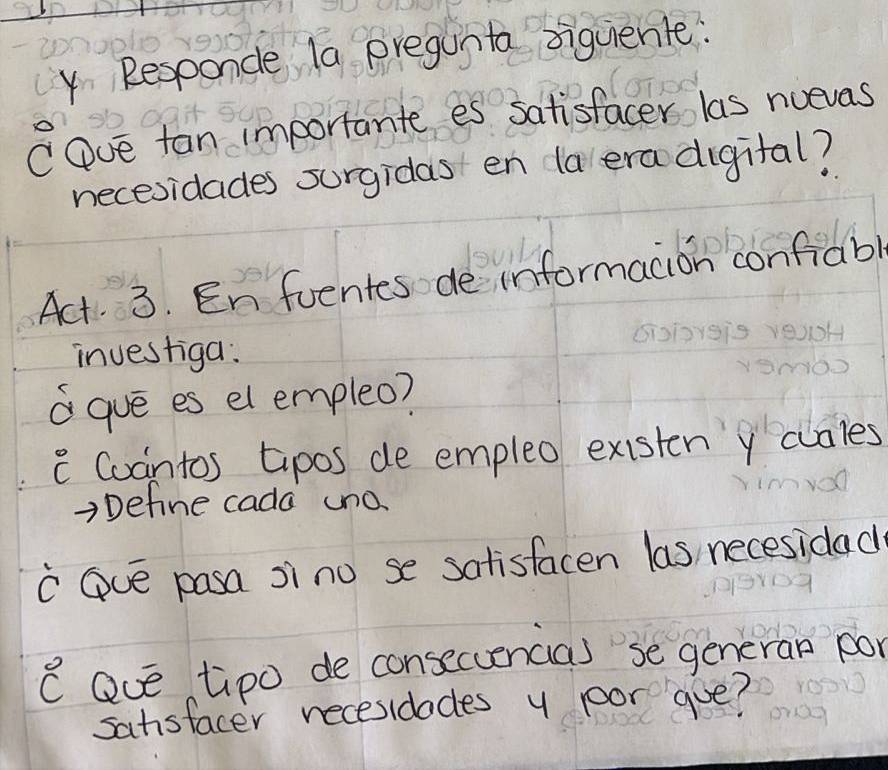 y Responde la pregunta siguiente:
¿Qué tan importante es satisfacer las nuevas
necesidades surgidas en la era digital?
Act. 3. En fuentes de información confiabl
investiga:
¿qué es el empleo?
¿Cuántos tipos de empleo existen y cuales
→Define cada una
¿Qué pasa si no se satisfacen las necesidad
¿Qué tipo de consecuencias se generan por
satisfacer necesidades y por que?